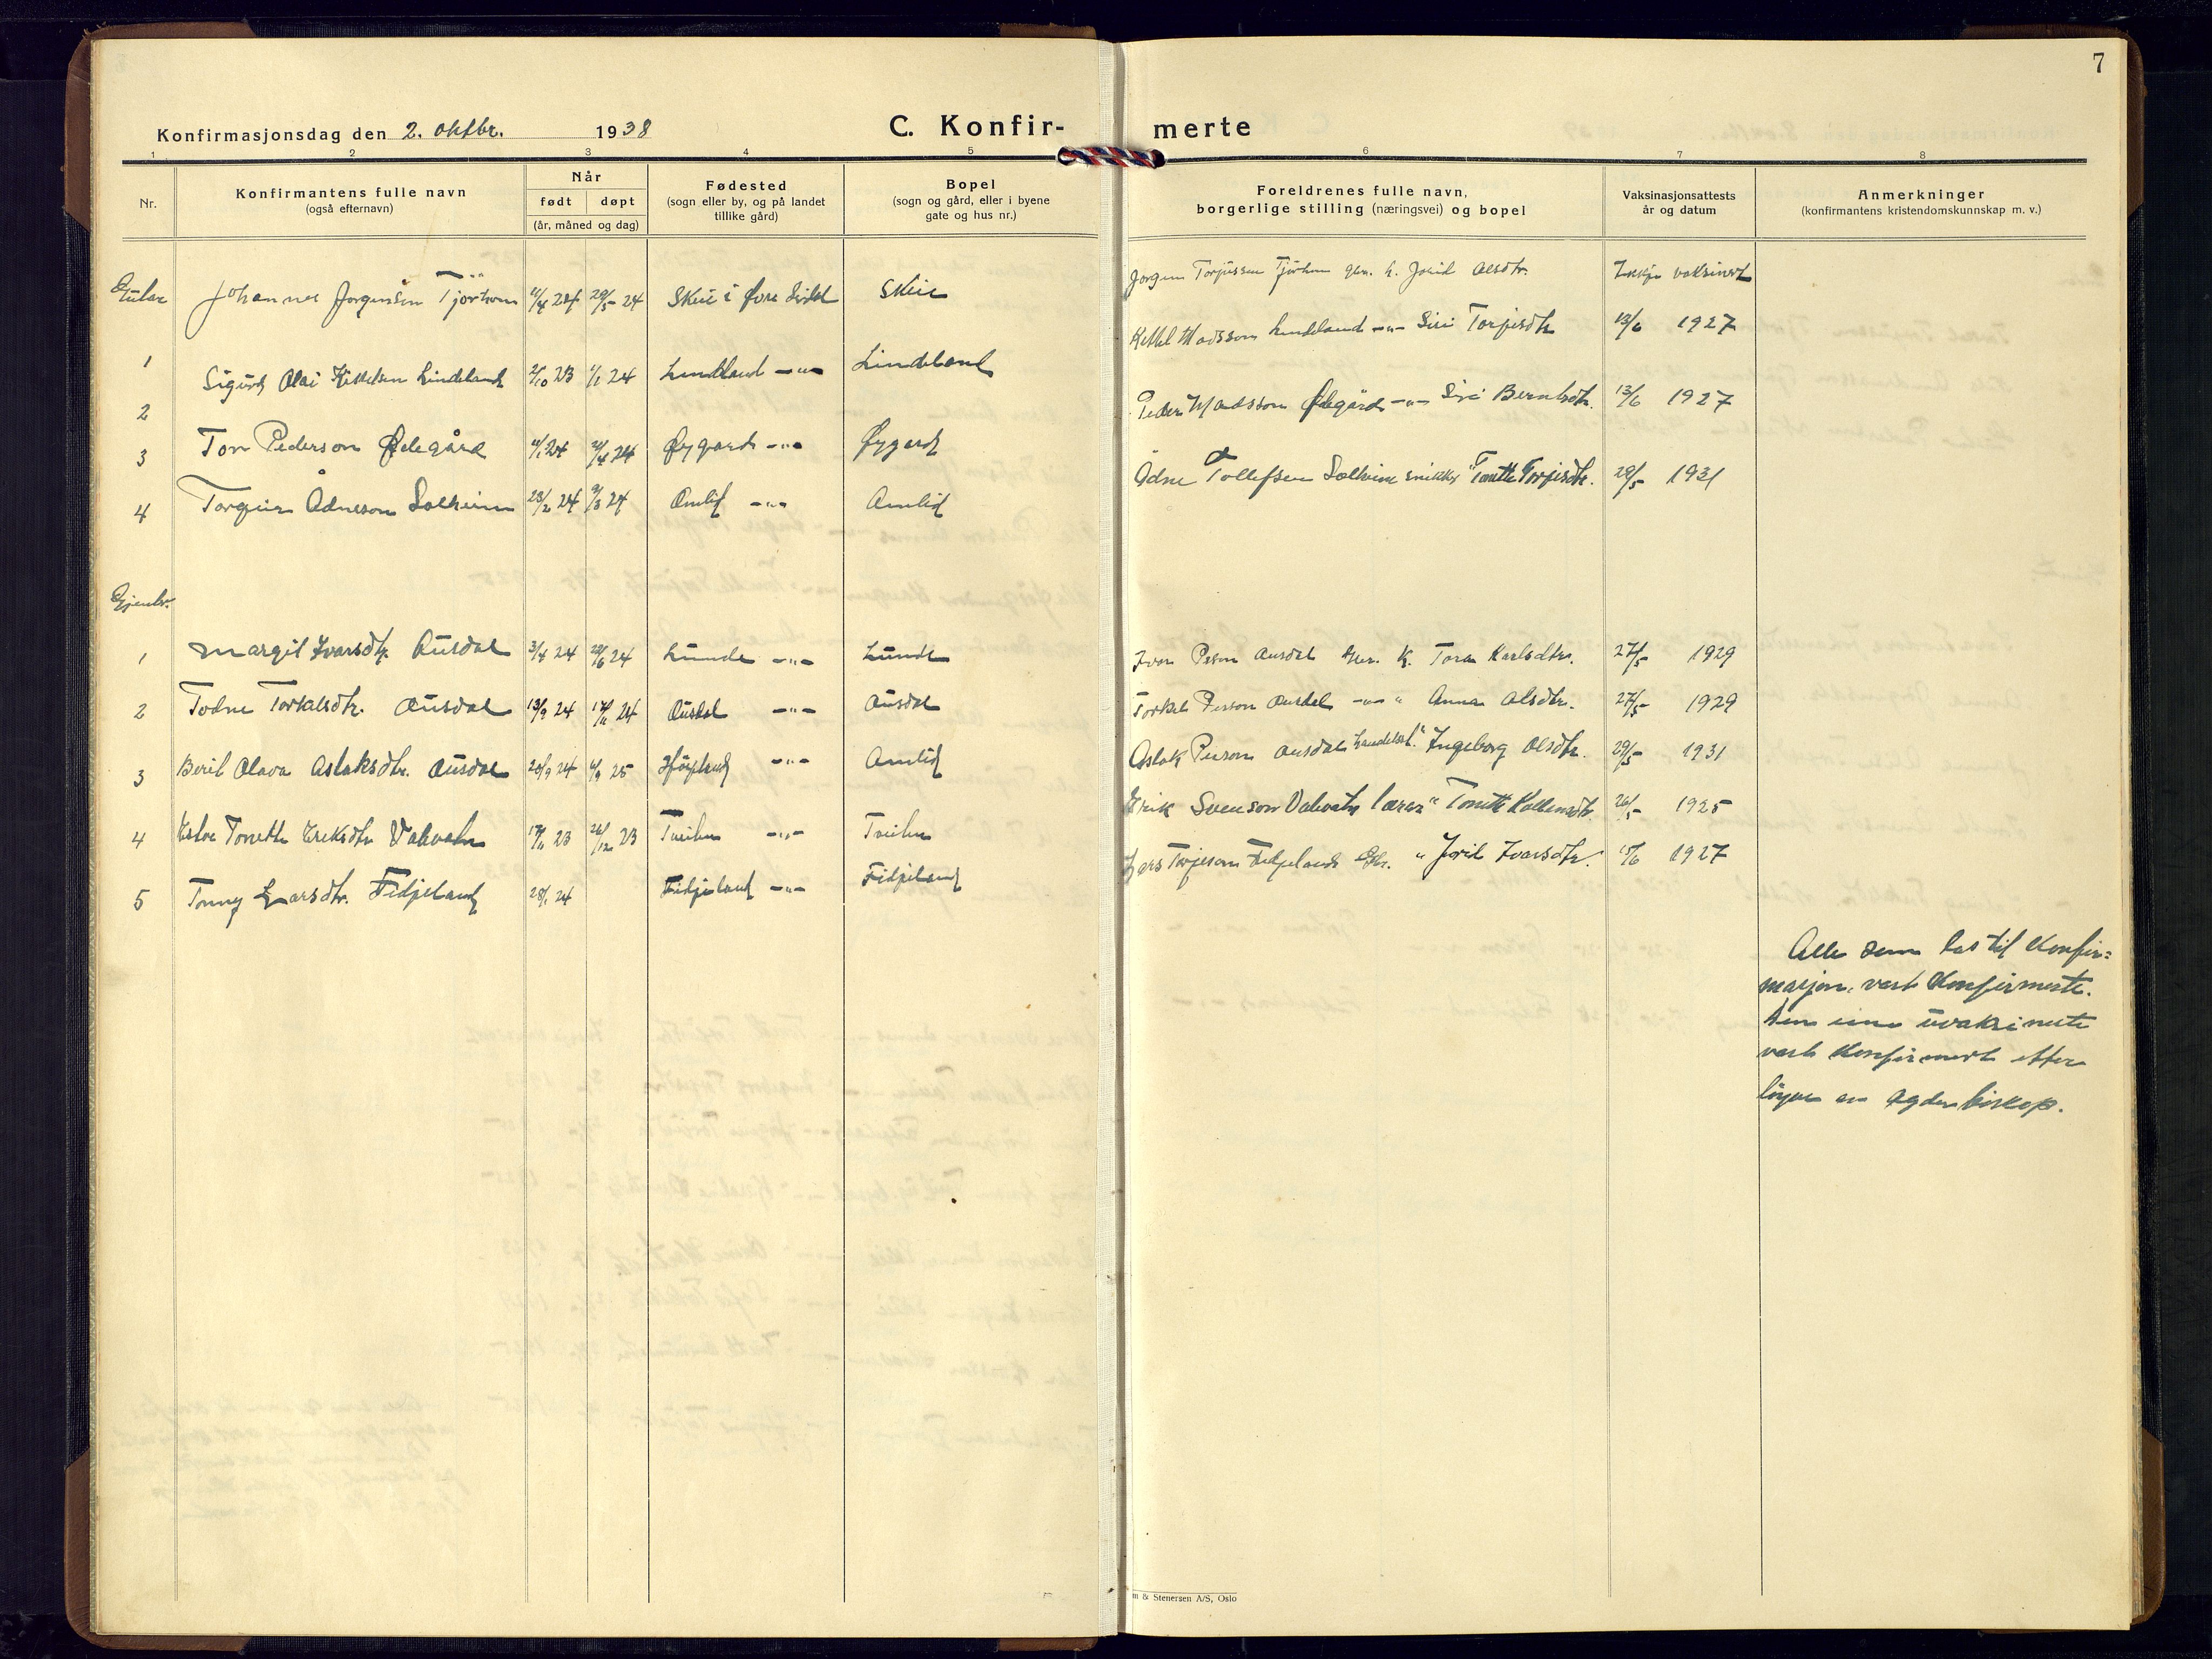 7
Konfirmasjonsdag den 2. oktbr. 1938
C. Konfir- merte
1 2 3 4 5 6 7 8
Nr.
Konfirmantens fulle navn
(også efternavn)
Når
født døpt
(år, måned og dag)
Fødested
(sogn eller by, og på landet
tillike gård)
Bopel
(sogn og gård, eller i byene
gate og hus nr.)
Foreldrenes fulle navn,
borgerlige stilling (næringsvei) og bopel
Vaksinasjonsattests
år og datum
Anmerkninger
(konfirmantens kristendomskunnskap m. v.)
Gutar
1 Johannes Jørgensen Tjörhom 24 29/5 24 Skeie i Øvre Sirdal Skeie Jørgen Torjussen Tjörhom h. Jorid Olsdtr. Ikkje vaksinert
2 Sigurd Olai Kittelsen Lindeland 2/10 23 1/1 24 Lindeland -"- Lindeland Kittel Madsson Lindeland -"- Siri Torjusdtr 13/6 1927
3 Tor Pederson Ødegård 24 24 Øygard -"- Øygard Peder Madsson Ødegård -"- Siri Berntsdtr. 13/6 1927
4 Torgeir Ådneson Solheim 23/2 24 9/3 24 Omlid -"- Omlid Ådne Tollefsen Solheim snikkar " Tonette Torjusdtr. 29/5 1931
Gjentr.
1 Margit Ivarsdtr. Ousdal 3/4 24 29/6 24 Lunde -"- Lunde Ivar Peson Ousdal K. Tora Karlsdtr. 27/5 1929
2 Todne Torkelsdtr. Ousdal 13/9 24 24 Ousdal -"- Ousdal Torkel Person Ousdal -"- " Anna Olsdtr. 27/5 1929
3 Berit Olava Aslaksdtr. Ousdal 20/9 24 25 -"- Omlid Aslak Person Ousdal handelsm. " Ingeborg Olsdtr. 29/5 1931
4 Tonette Eriksdtr 23 26/12 23 -"- Erik Svenson lærar " Tonette 26/5 1925
5 Tonny Larsdtr. Fidjeland 28/1 24 Fidjeland -"- Fidjeland Lars Torjeson Fidjeland Gbr. " Jorid Ivarsdtr. 1927
Alle som las til Konfir=
masjon, vart Konfirmerte.
Den eine uvaksinerte
vart Konfirmert etter
løyve av Agder biskop.
m & Stenersen A/S, Oslo